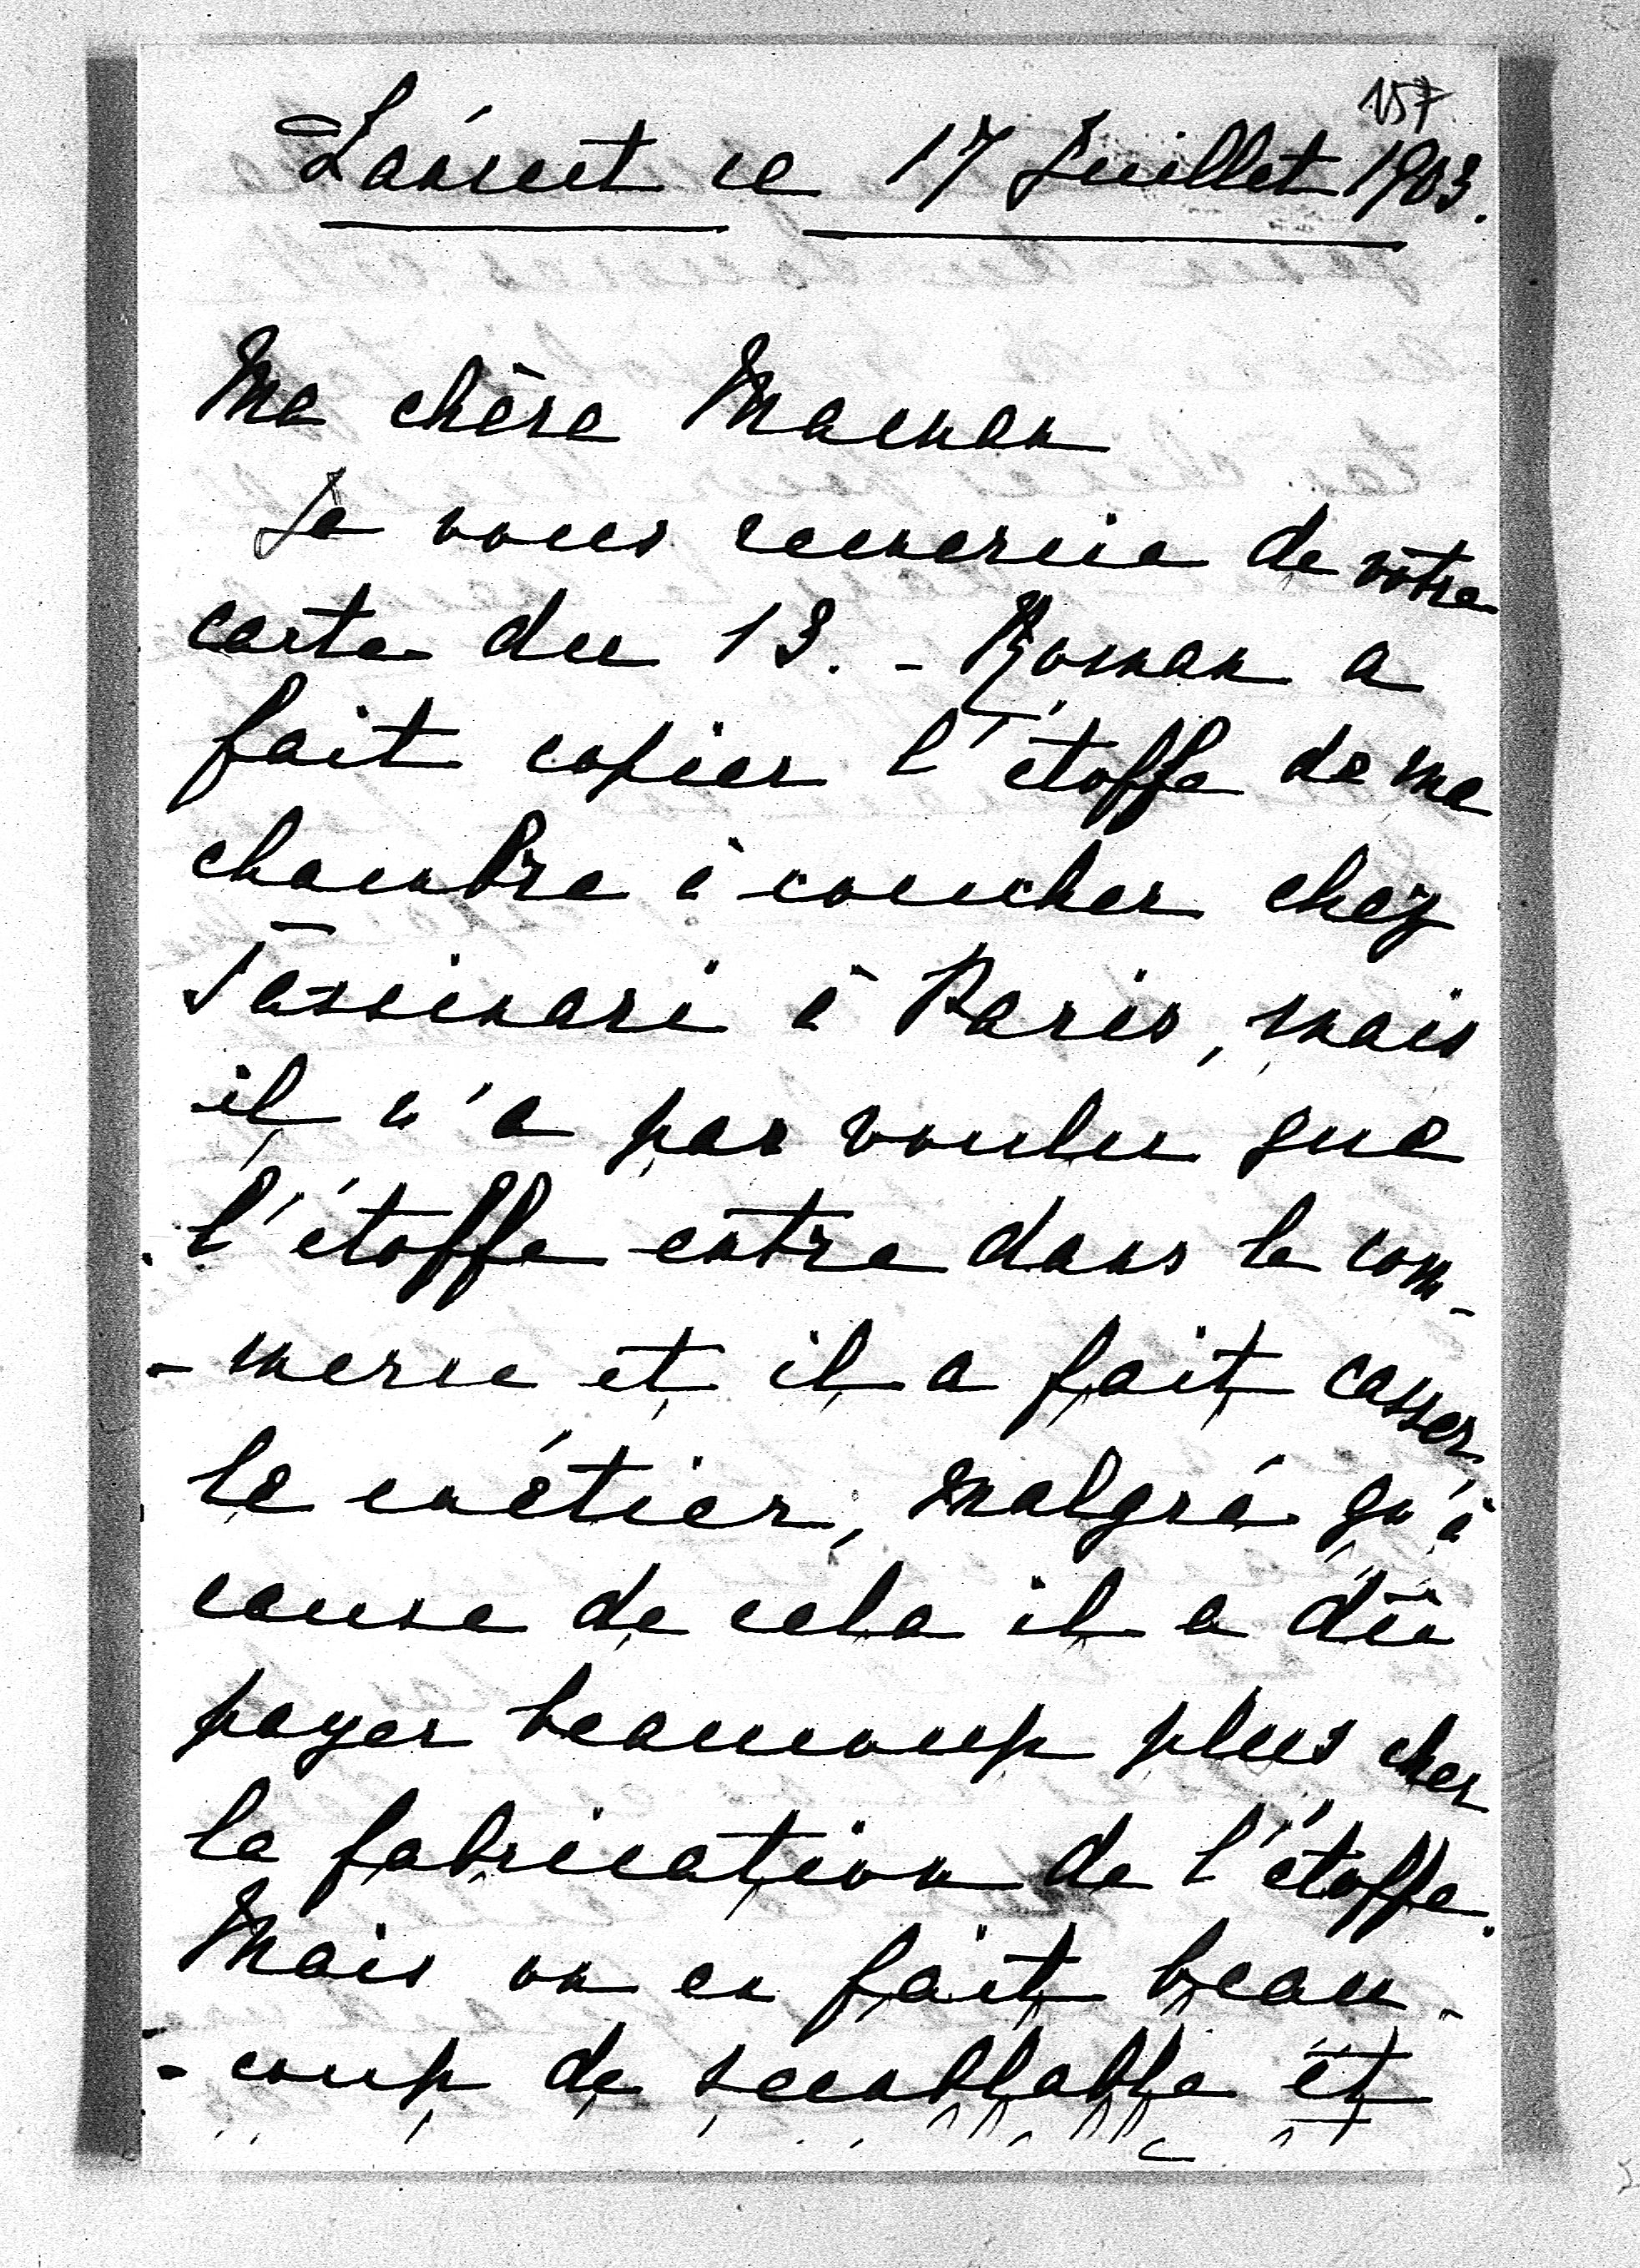 157
Łańcut ce 17 Juillet 1903.
Ma chère Maman
Je vous remercie de votre
carte du 13. - Roman a
fait copier l'étoffe de ma
chambre à coucher chez
Tassinari à Paris, mais
il n'a pas voulu que
l'étoffe entre dans le com-
-merce et il a fait casser
le métier, malgré qu'à
cause de cela il a dû
payer beaucoup plus cher
la fabrication de l'étoffe.
Mais on en fait beau-
-coup de semblable et